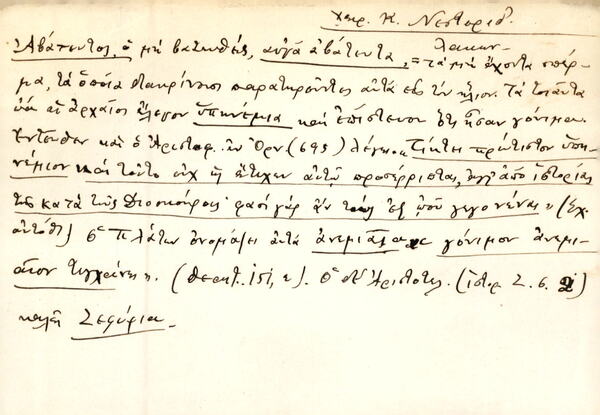 Χειρ. Κ. Νεστορίδ.
Ἀβάτευτος, ὁ μὴ βατευθείς, αὐγὰ ἀβάτευτα, = τὰ μὴ ἔχοντα σπέρ-
μα, τὰ ὁποῖα διακρίνουσι παρατηροῦντες αὐτὰ εἰς τὸν ἥλιον. Τὰ τοιαῦτα
ᾠὰ οἱ ἀρχαῖοι ἔλεγον ὑπηνέμια καὶ ἐπίστευον ὅτι ἦσαν γόνιμα.
Ἐντεῦθεν καὶ ὁ Ἀριστοφ. ἐν Ὄρν. (695) λέγει „Τίκτει πρώτιστον ὑπη-
νέμιον καὶ τοῦτο οὐχ ᾗ ἔτυχεν αὐτῷ προσέρριπται, ἀλλ' ἀπὸ ἱστορίας
τῆς κατὰ τοὺς Διοσκούρους· φασὶ γὰρ ἐν τοῖς ἐξ ᾠοῦ γεγονέναι" (Σχ.
αὐτόθι) ὁ Πλάτων ὀνομάζει αὐτὰ ἀνεμιαῖα γόνιμον ἀνεμι-
αῖον τυγχάνει". (Θεαιτ. 151, e). Ὁ δ' Ἀριστοτ. (ἱστορ. Ζ. 6. 2)
καλεῖ Ζεφύρια.